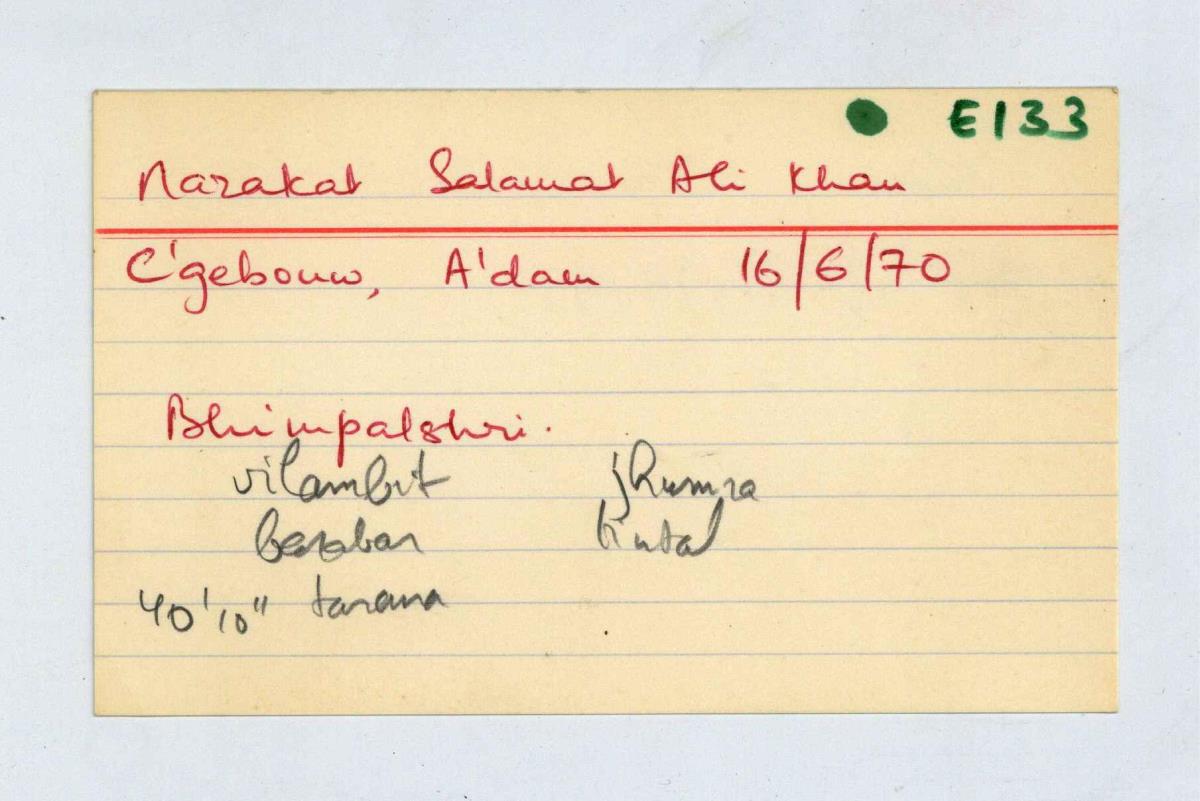 E133
Nazakat Salamat Ali Khan
C'gebouw, A'dam 16/6/70
Bhimpalshri.
vilambit jhumra
barabar tintal
40'10" tarana